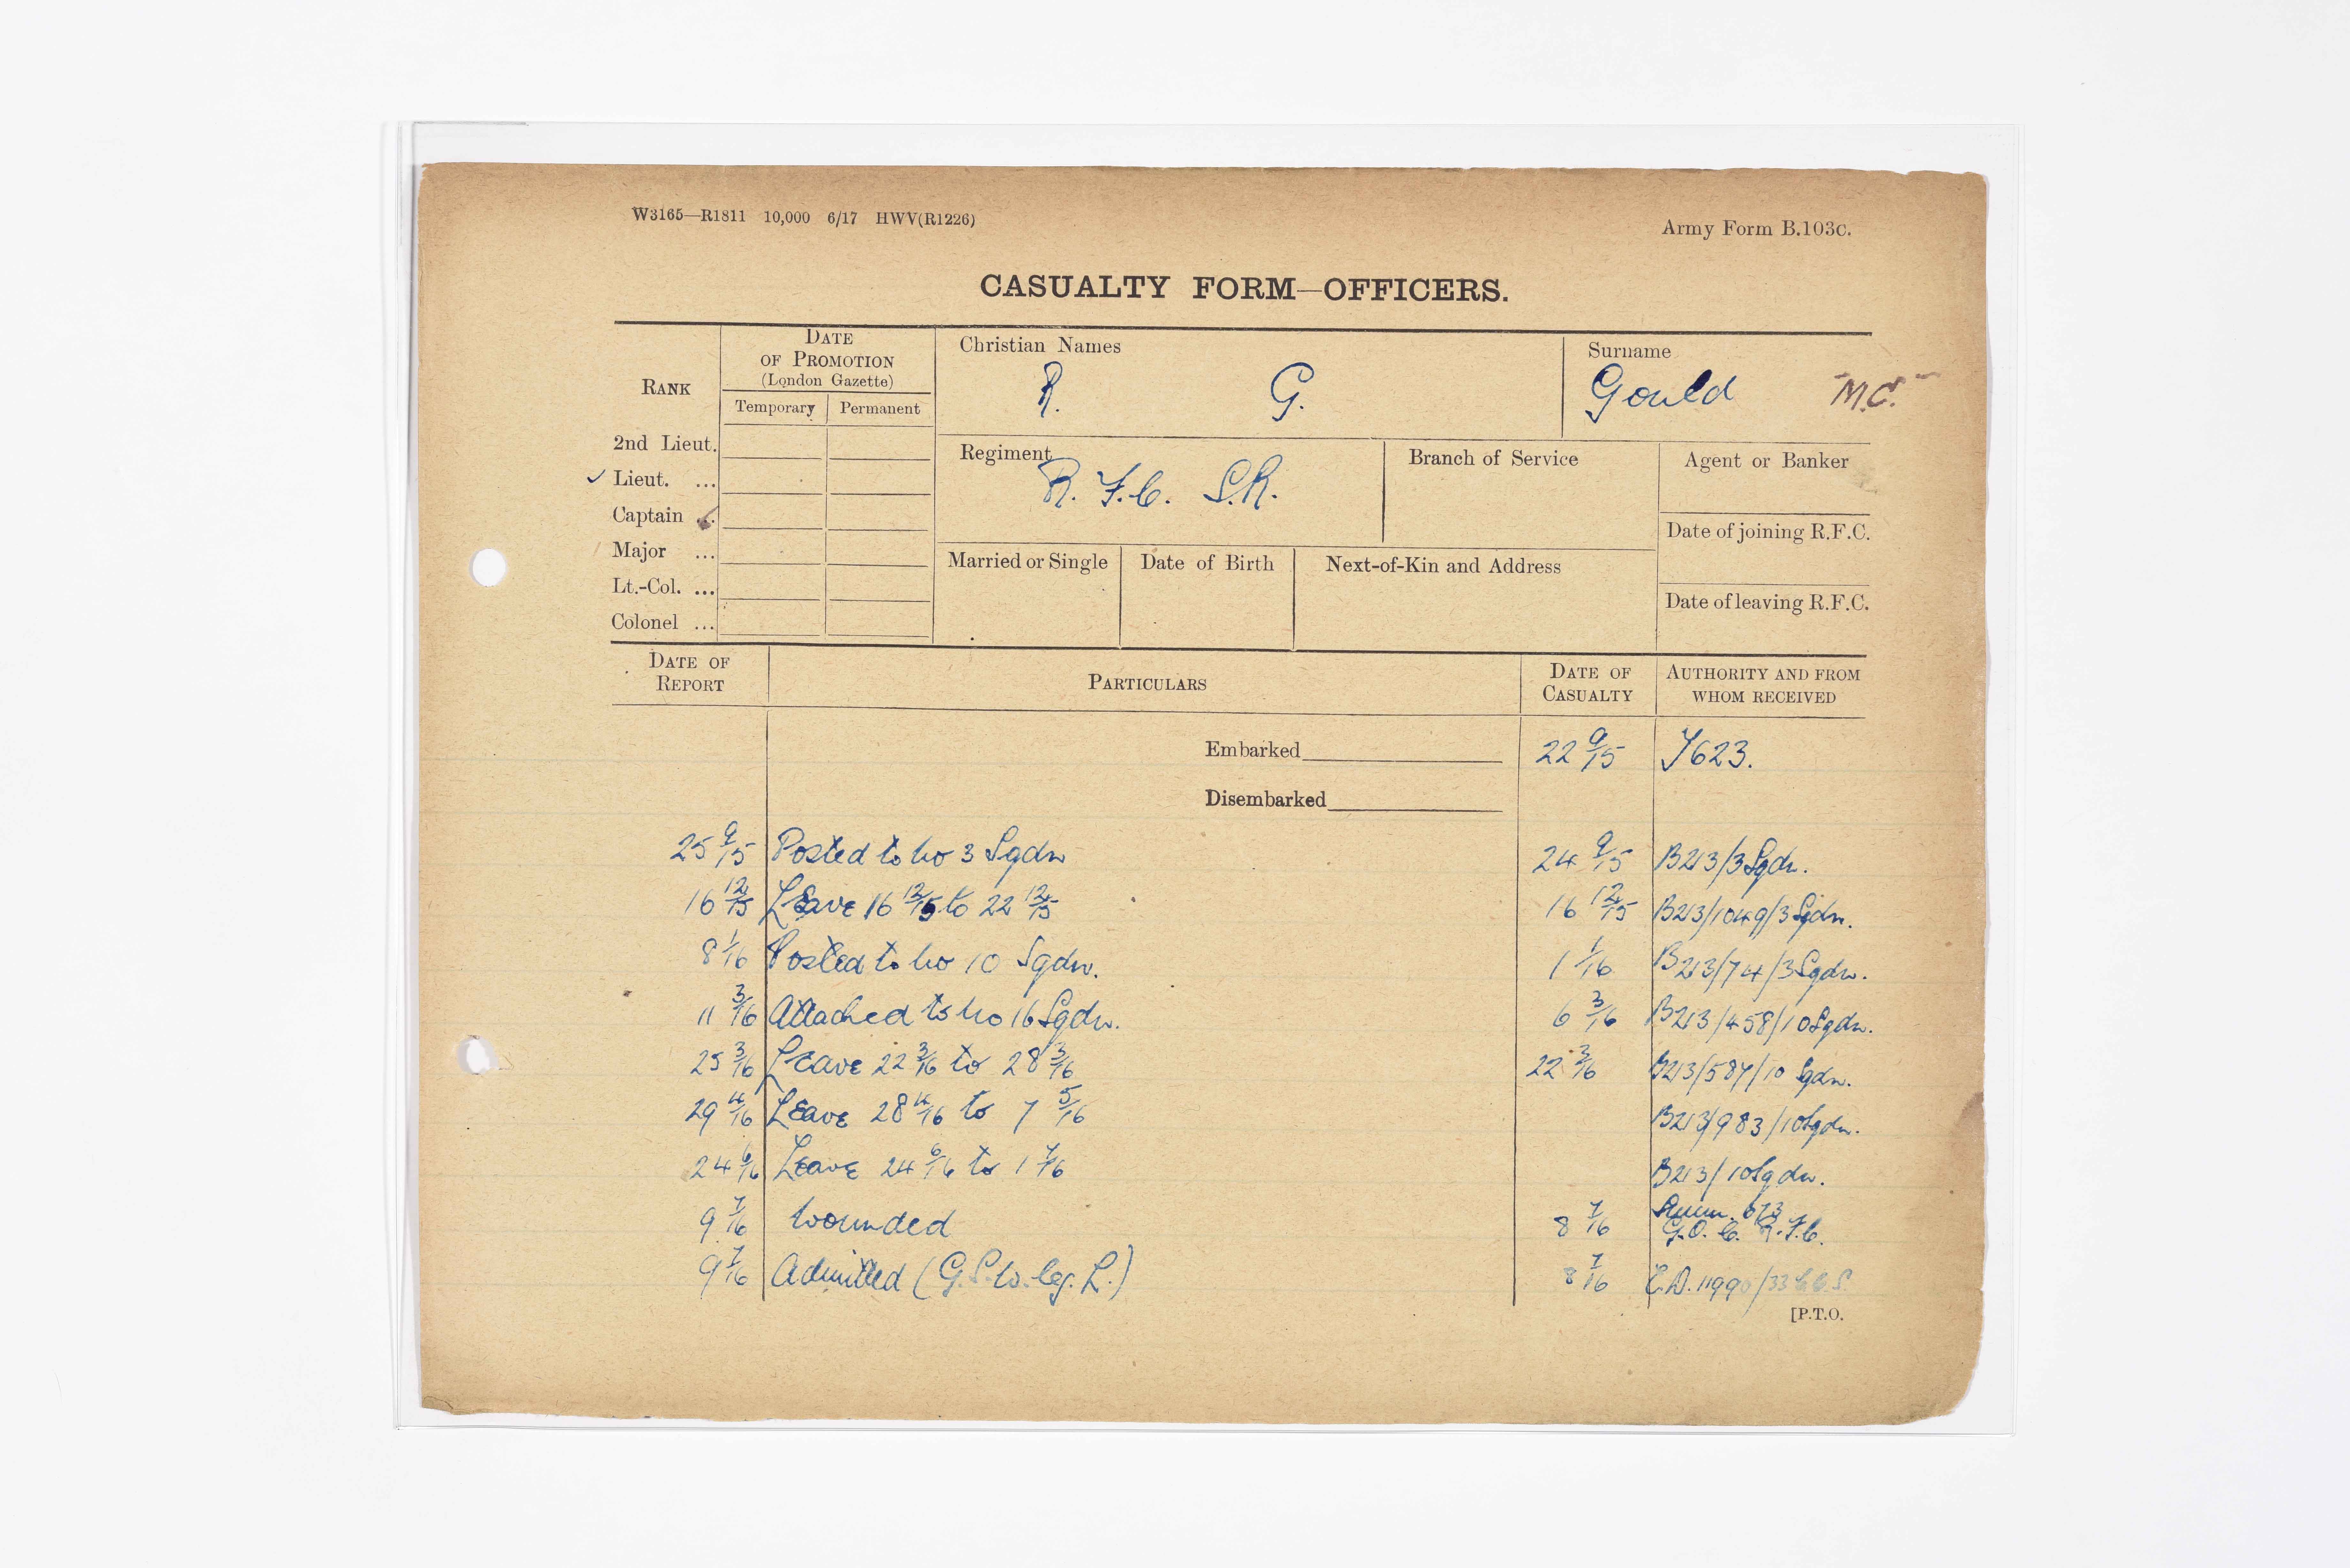 W3165—R1811 10,000 6/17 HWV(R1226)
Army Form B.103c.
CASUALTY FORM—OFFICERS.
RANK
DATE OF PROMOTION (London Gazette)
Temporary Permanent
2nd Lieut.
✓ Lieut. ...
Captain ...
Major ...
Lt.-Col. ...
Colonel ...
Christian Names
R. G.
Surname
Gould M.C.
Regiment
R.F.C. S.R.
Branch of Service
Agent or Banker
Date of joining R.F.C.
Date of leaving R.F.C.
Married or Single
Date of Birth
Next-of-Kin and Address
DATE OF REPORT
PARTICULARS
DATE OF CASUALTY
AUTHORITY AND FROM WHOM RECEIVED
Embarked 22 9/15 Y623.
Disembarked
25 9/15 Posted to No 3 Sqdn 24 9/15 B213/3 Sqdn.
16 12/15 Leave 16 12/15 to 22 12/15 16 12/15 B213/1049/3 Sqdn.
8 1/16 Posted to No 10 Sqdn. 1 1/16 B213/74/3 Sqdn.
11 3/16 Attached to No 16 Sqdn. 6 3/16 B213/458/10 Sqdn.
25 3/16 Leave 22 3/16 to 28 3/16 22 3/16 B213/587/10 Sqdn.
29 4/16 Leave 28 4/16 to 7 5/16 B213/983/10 Sqdn.
24 6/16 Leave 24 6/16 to 1 7/16 B213/10 Sqdn.
9 7/16 Wounded 8 7/16 673 G.O.C. R.F.C.
9 7/16 Admitted (G.S.W. leg. L.) 8 7/16 E.D. 11990/33 C.C.S.
[P.T.O.